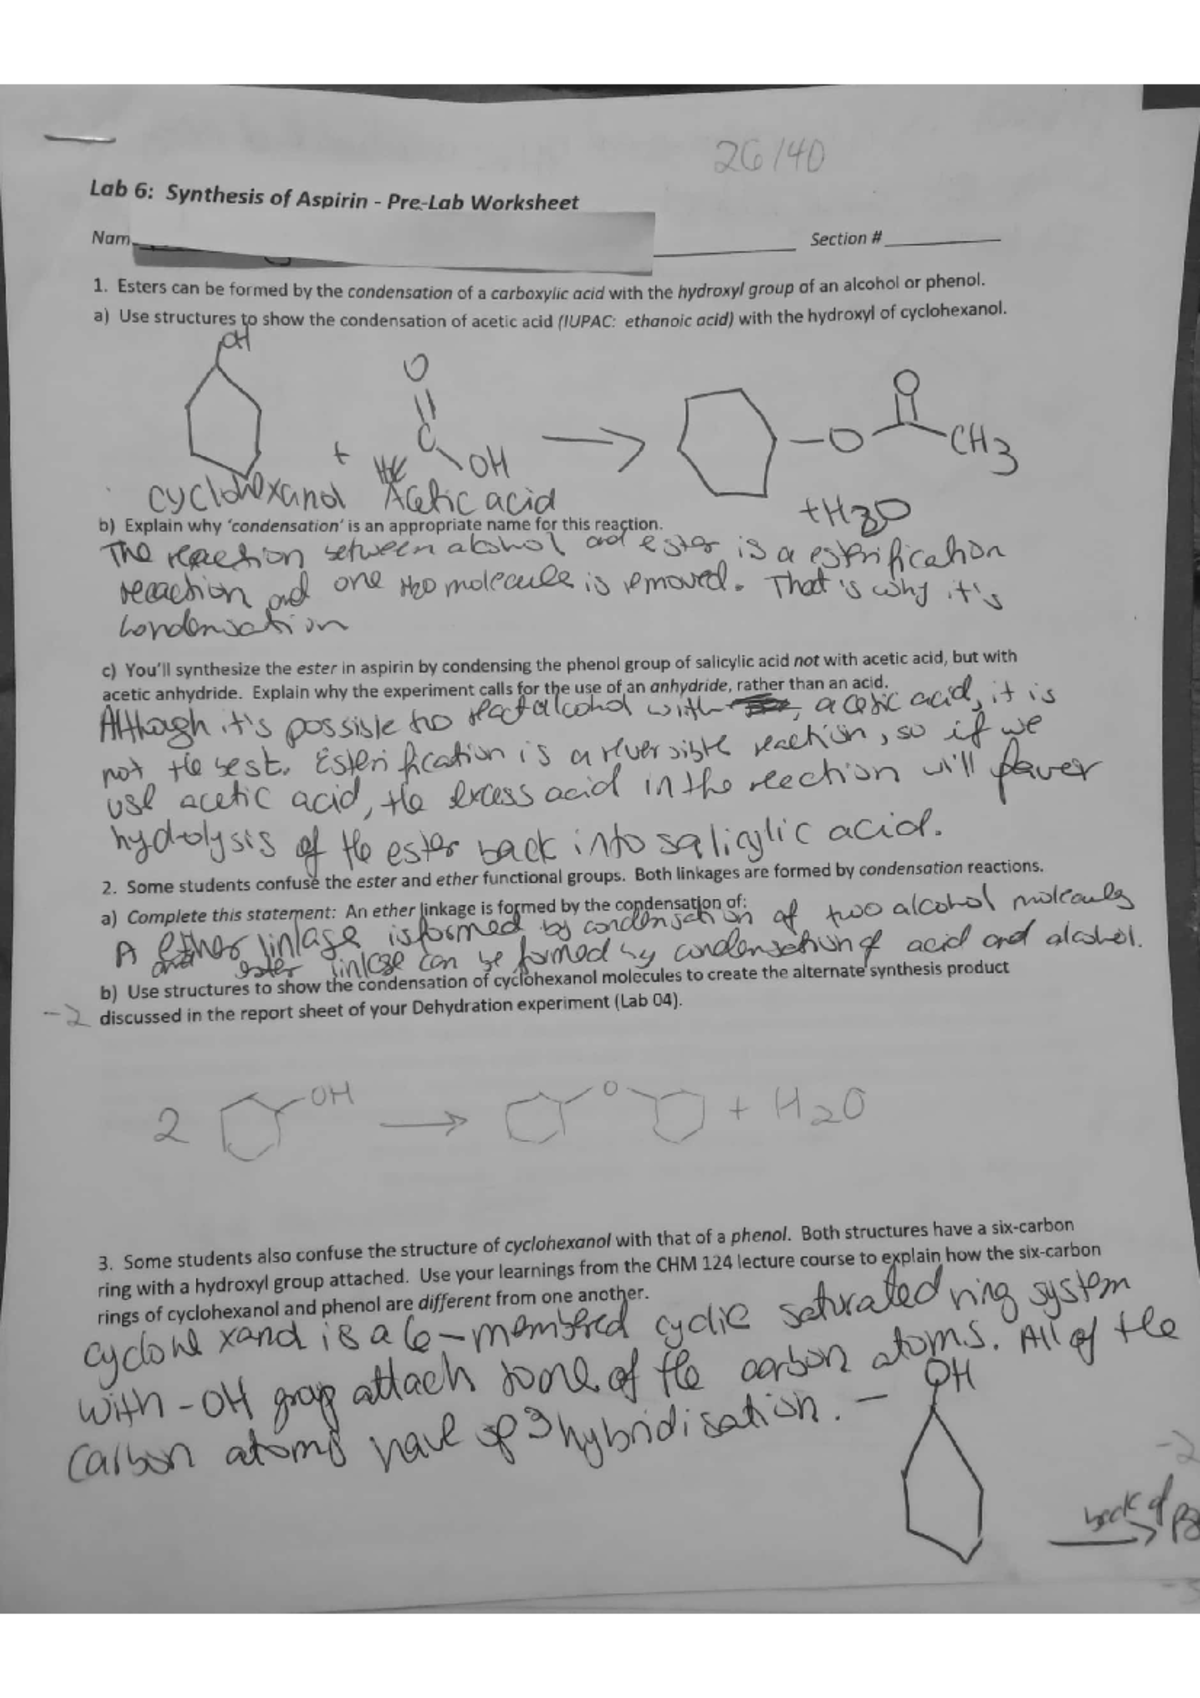 26/40
Lab 6: Synthesis of Aspirin - Pre-Lab Worksheet
Nam
Section #
1. Esters can be formed by the condensation of a carboxylic acid with the hydroxyl group of an alcohol or phenol.
a) Use structures to show the condensation of acetic acid (IUPAC: ethanoic acid) with the hydroxyl of cyclohexanol.
OH
O
O
C
+
OH
O
CH3
cyclohexanol Acetic acid
+H2O
b) Explain why 'condensation' is an appropriate name for this reaction.
The reaction between alcohol and ester is a esterification
reaction and one H2O molecule is removed. That's why it's
condensation
c) You'll synthesize the ester in aspirin by condensing the phenol group of salicylic acid not with acetic acid, but with
acetic anhydride. Explain why the experiment calls for the use of an anhydride, rather than an acid.
Although it's possible to react alcohol with, acetic acid, it is
not the best. Esterification is a reversible reaction, so if we
use acetic acid, the excess acid in the reection will faver
hydrolysis of the ester back into salicylic acid.
2. Some students confuse the ester and ether functional groups. Both linkages are formed by condensation reactions.
a) Complete this statement: An ether linkage is formed by the condensation of:
A ether linkage is formed by condensation of two alcohol molecules
and ester linkage can be formed by condensation of acid and alcohol.
b) Use structures to show the condensation of cyclohexanol molecules to create the alternate synthesis product
-2 discussed in the report sheet of your Dehydration experiment (Lab 04).
2
OH
O
+ H2O
3. Some students also confuse the structure of cyclohexanol with that of a phenol. Both structures have a six-carbon
ring with a hydroxyl group attached. Use your learnings from the CHM 124 lecture course to explain how the six-carbon
rings of cyclohexanol and phenol are different from one another.
cyclohexanol is a 6-membered cyclic saturated ring system
with -OH group attach to one of the carbon atoms. All of the
carbon atoms have sp3 hybridisation. -
OH
-2
back of